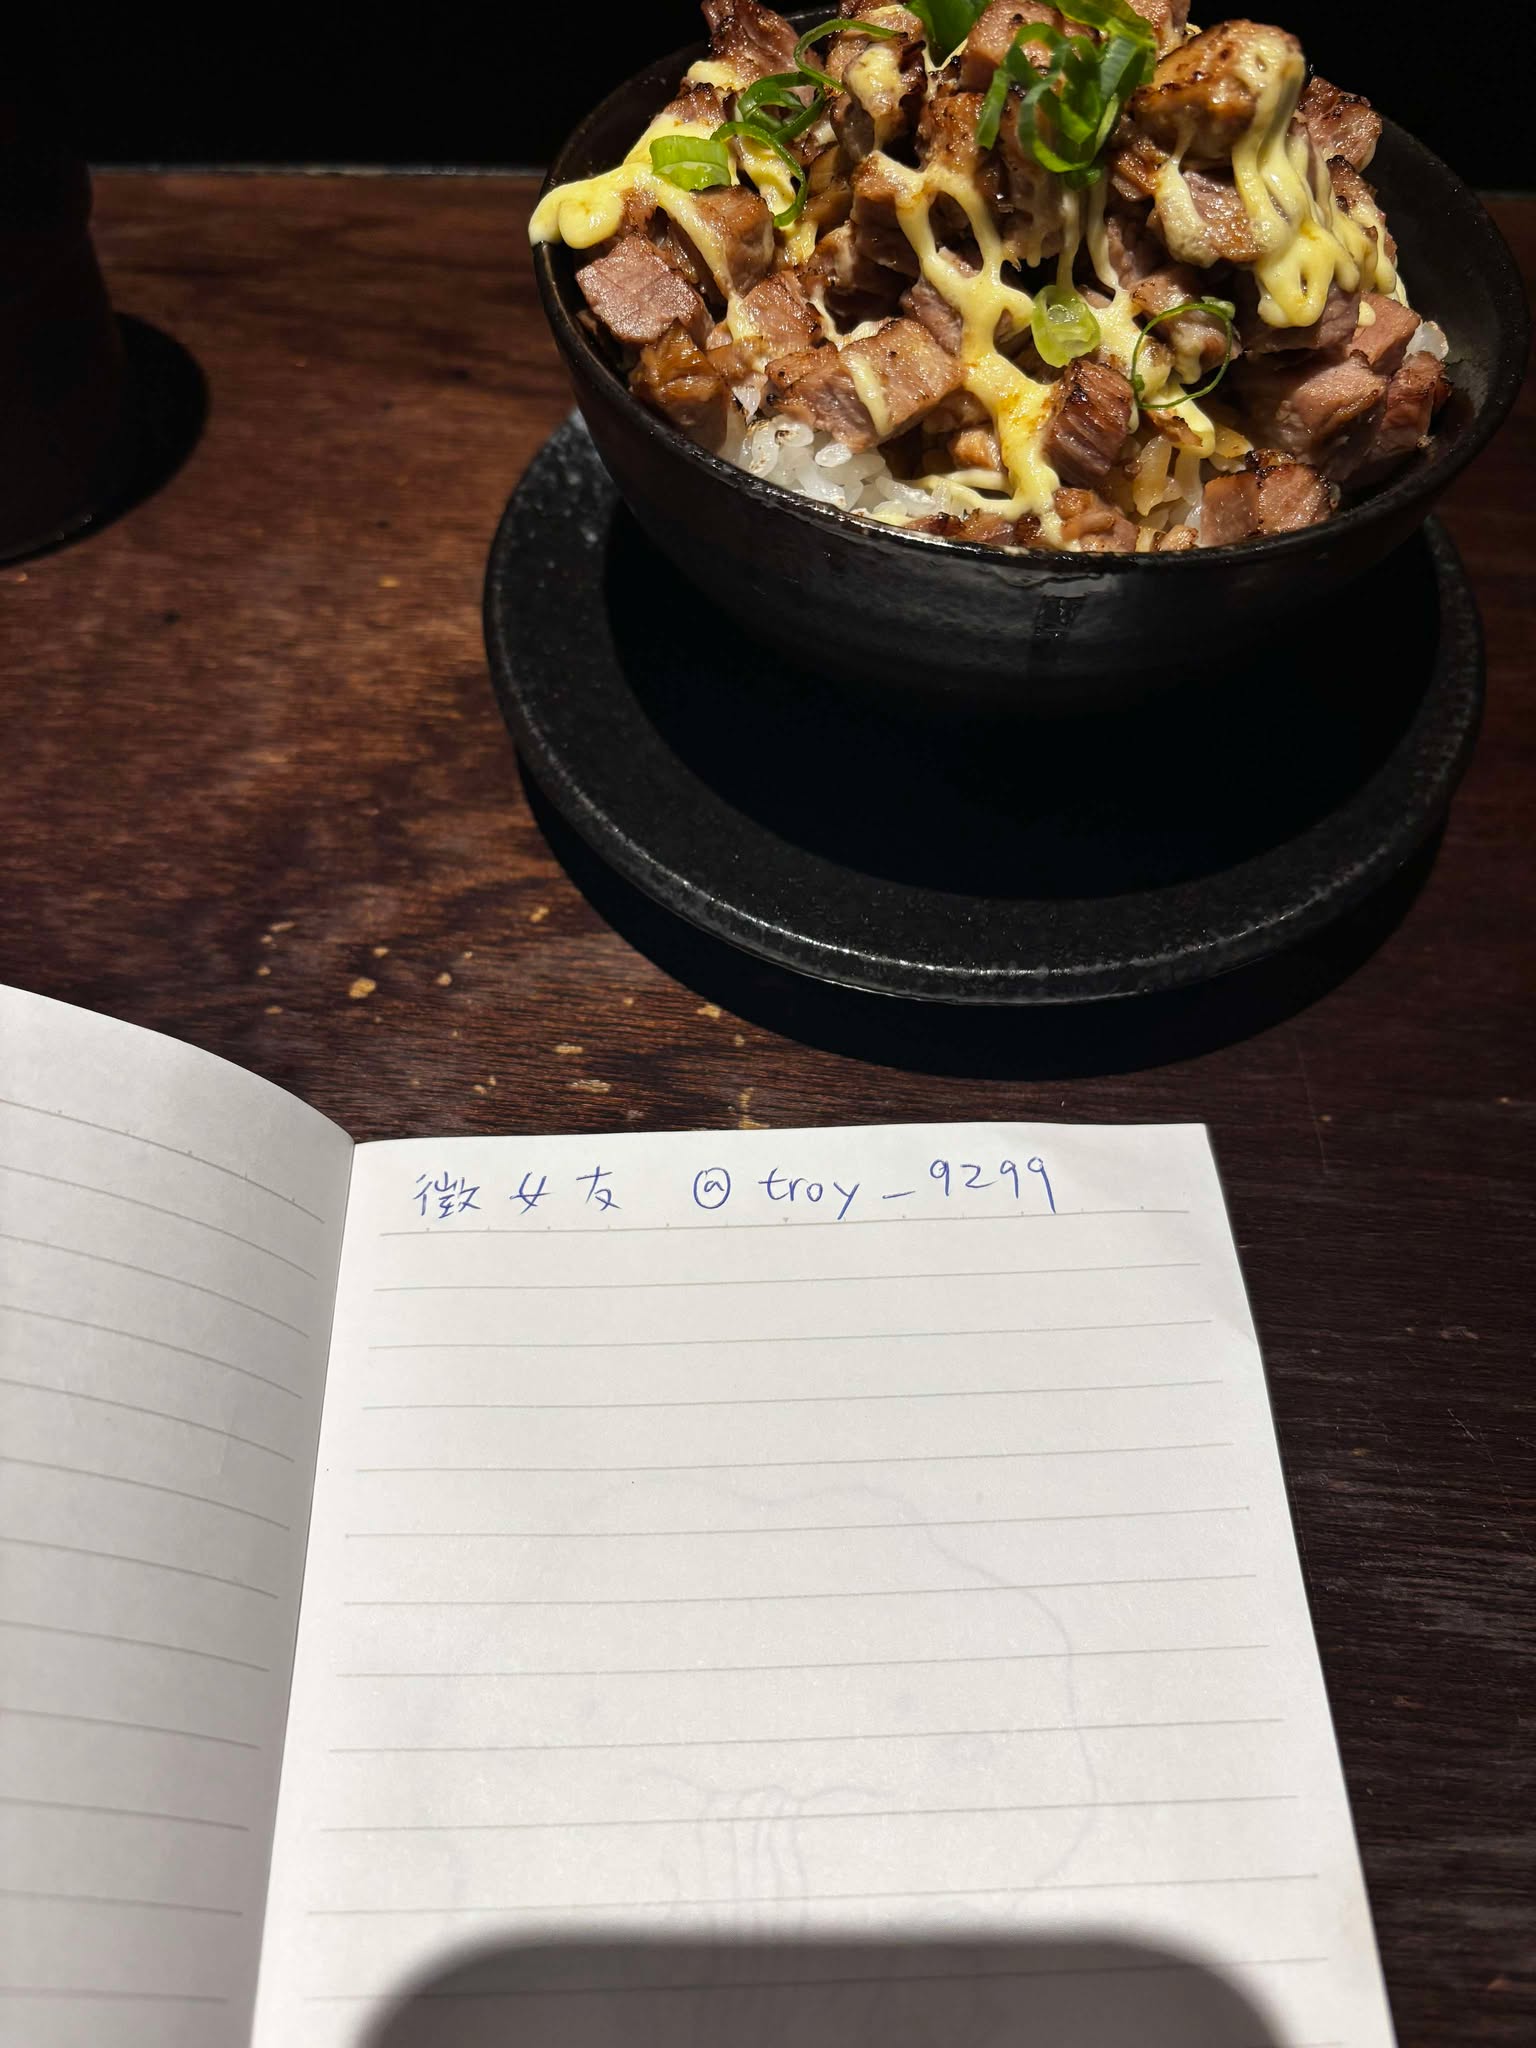 徵女友 @troy_9299